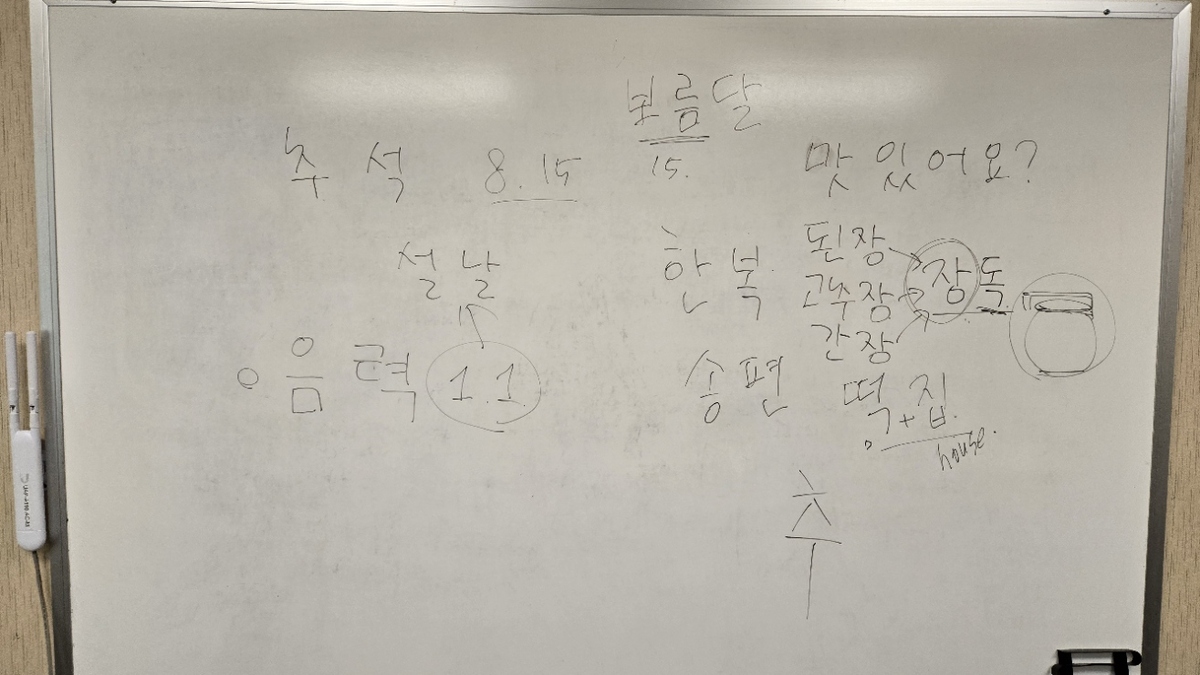 보름달
추석 8.15 15. 맛있어요?
설날 한복 된장
고추장 장독
간장
음력 1.1. 송편 떡+집.
house.
추